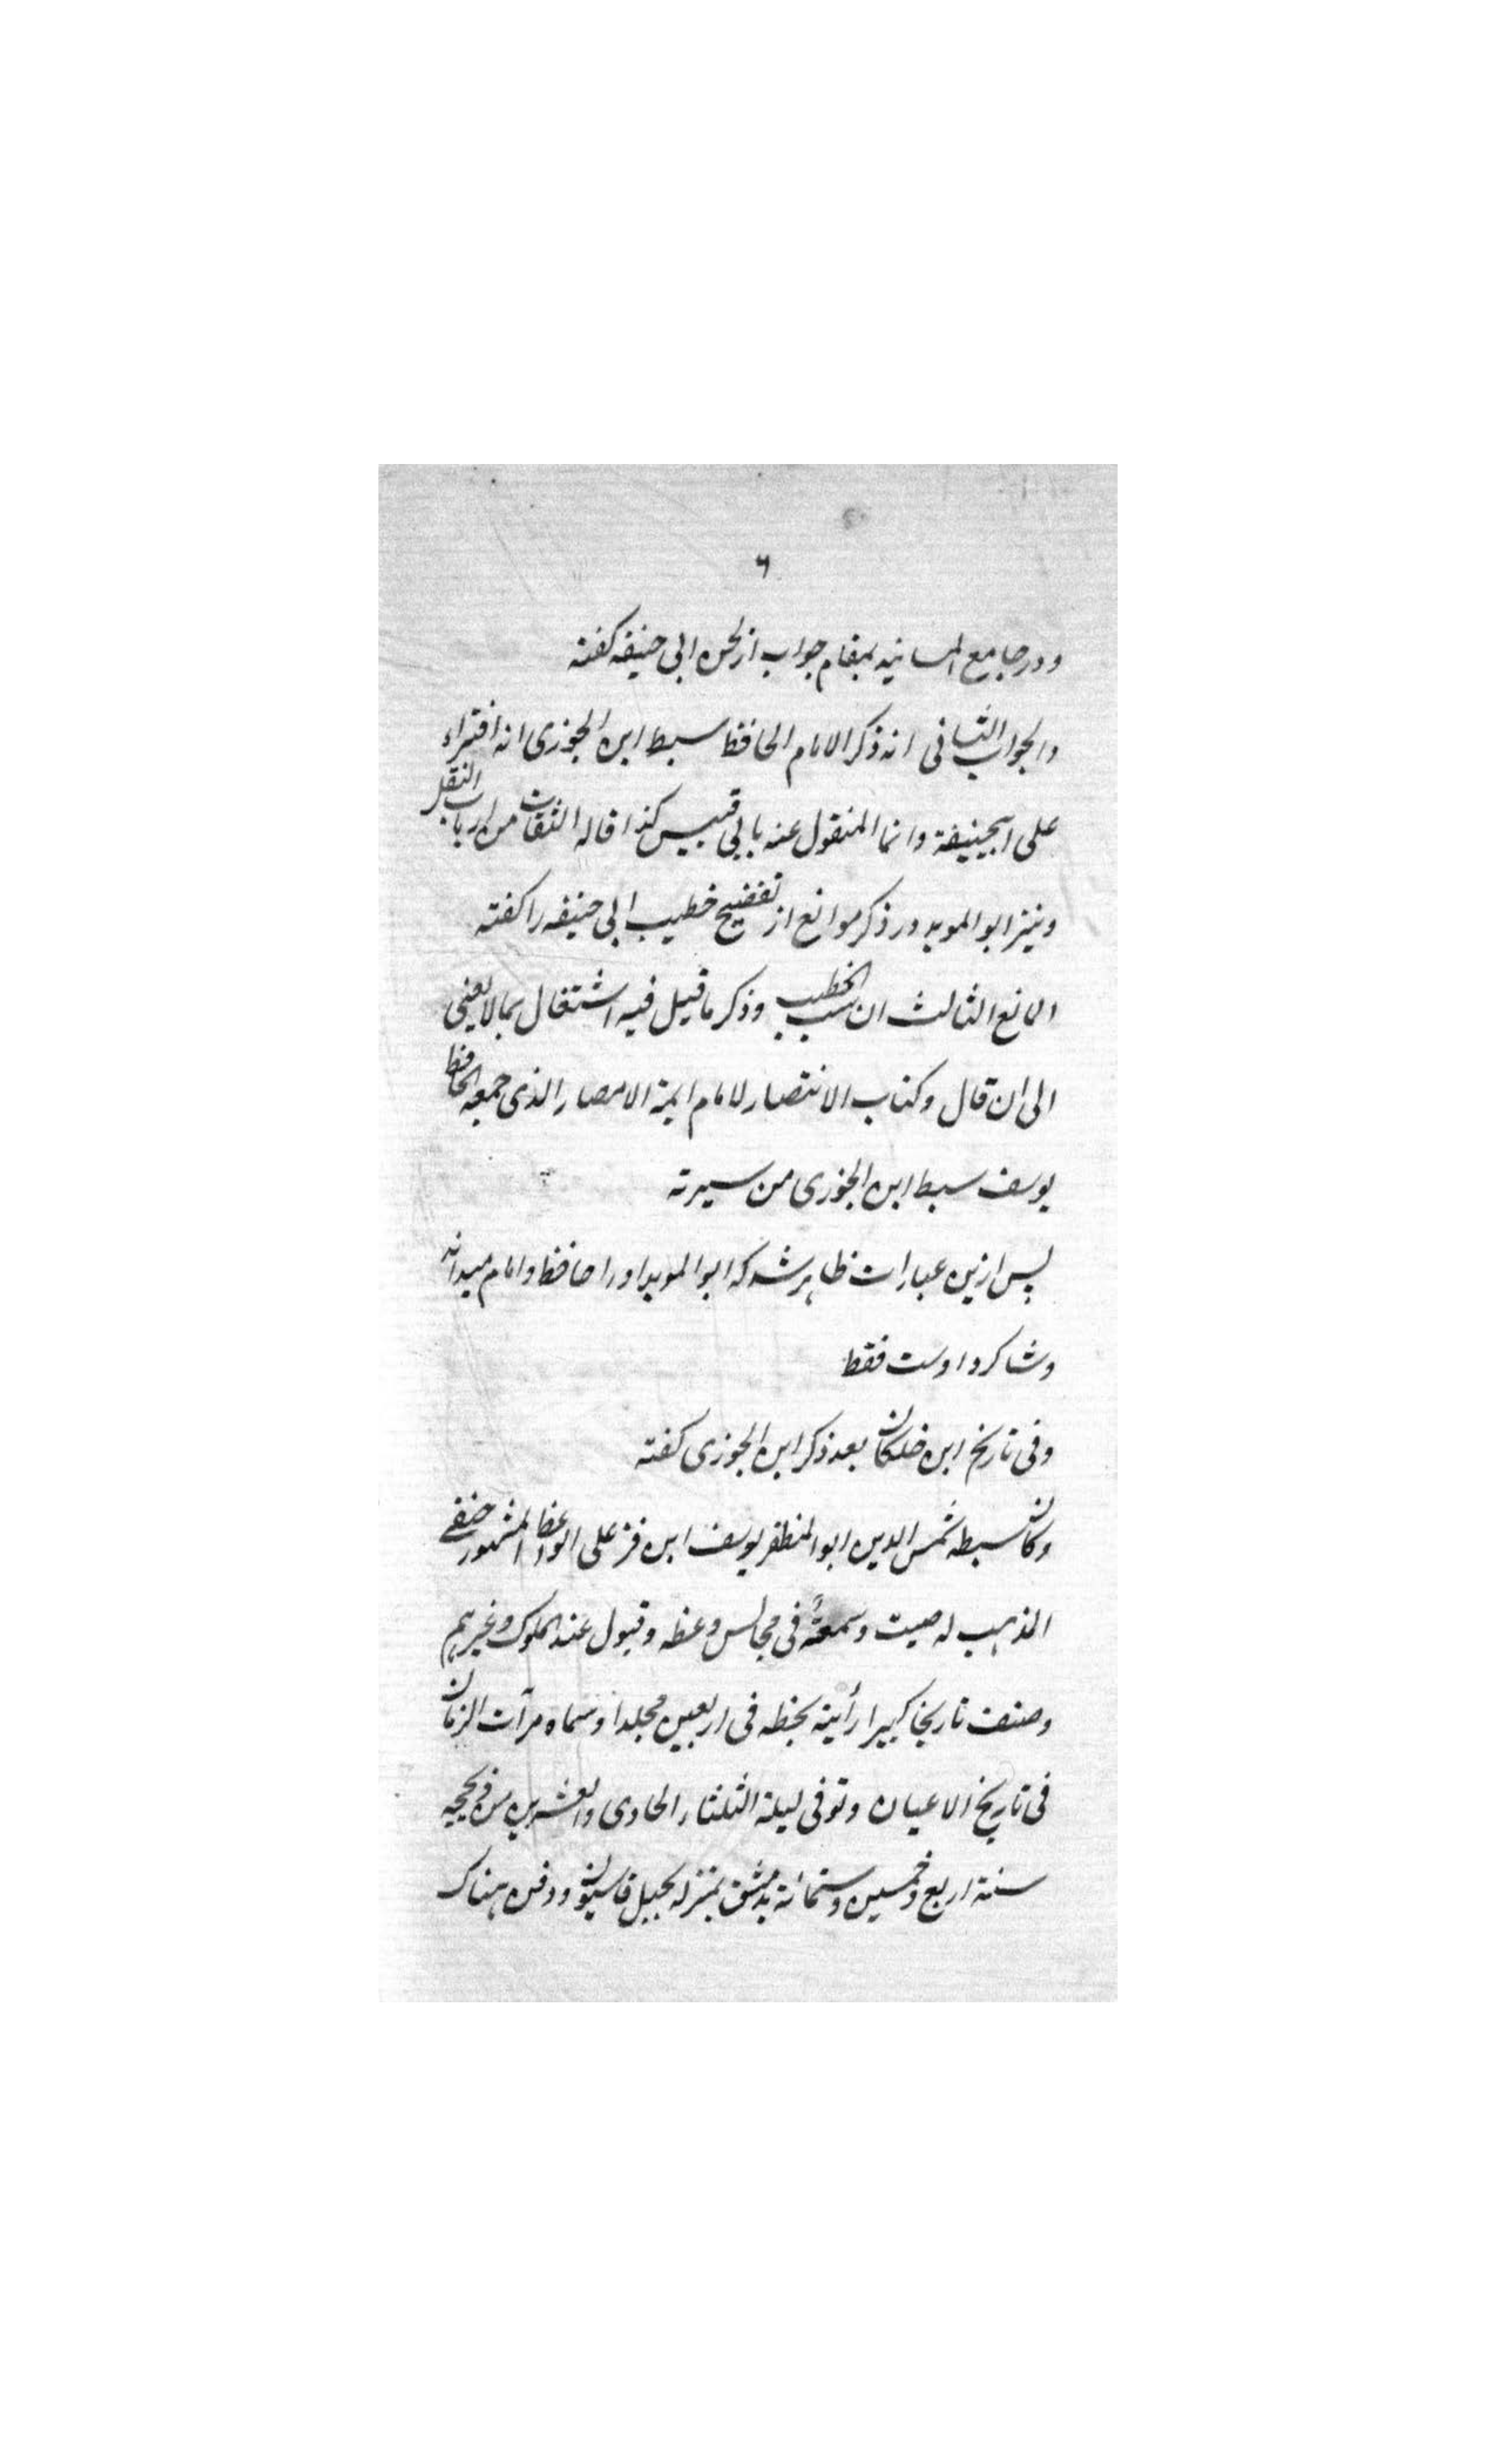 ٦
ودر جامع المسانید بمقام جواب از لحن ابی حنیفه کفته
والجواب الثانی انه ذکر الامام الحافظ سبط ابن الجوزی انه افتراء
علی ابیحنیفة وانما المنقول عنه بابی قبیس کذا قاله الثقات من ارباب النقل
ونیز ابو الموید در ذکر موانع از تفضیح خطیب ابی حنیفه را کفته
المانع الثالث ان الخطیب وذکر ما قیل فیه اشتغال بما لا یعنی
الی ان قال وکتاب الانتصار لامام ایمة الامصار الذی جمعه الحافظ
یوسف سبط ابن الجوزی من سیرته
پس ازین عبارات ظاهر شد که ابو الموید اورا حافظ وامام میداند
وشاکرد اوست فقط
وفی تاریخ ابن خلکان بعد ذکر ابن الجوزی کفته
وکان سبطه شمس الدین ابو المظفر یوسف ابن قزعلی الواعظ المشهور حنفی
المذهب له صیت وسمعةٌ فی مجالس وعظه وقبول عند الملوک وغیرهم
وصنف تاریخا کبیرا رأیته بخطه فی اربعین مجلدا وسماه مرآت الزمان
فی تاریخ الاعیان وتوفی لیلة الثلثاء الحادی والعشرین من ذیحجه
سنة اربع وخمسین وستمائة بدمشق بمنزله بجبل قاسیون ودفن هناک